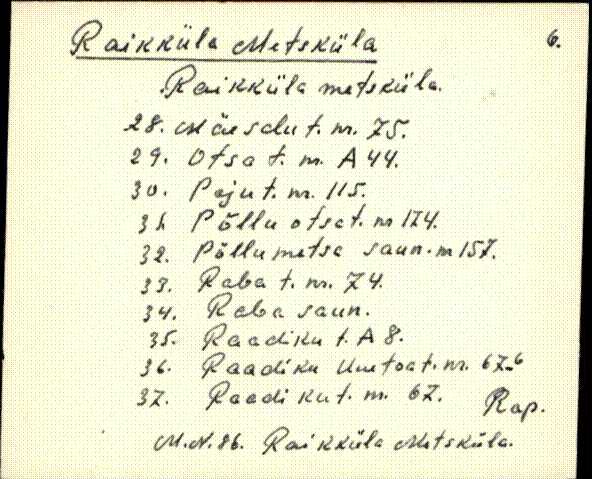 Raikküla Metsküla 6.
Raikküla metsküla.
28. Mäe salu t. nr. 75.
29. Otsa t. nr. A 44.
30. Paju t. nr. 115.
31. Põllu otsa t. nr 174.
32. Põllu metsa saun. nr 157.
33. Raba t. nr. 74.
34. Raba saun.
35. Raadiku t. A 8.
36. Raadiku Uuetoa t. nr. 67-b
37. Raadiku t. nr. 67.
Rap.
M.N. 86. Raikküla Metsküla.